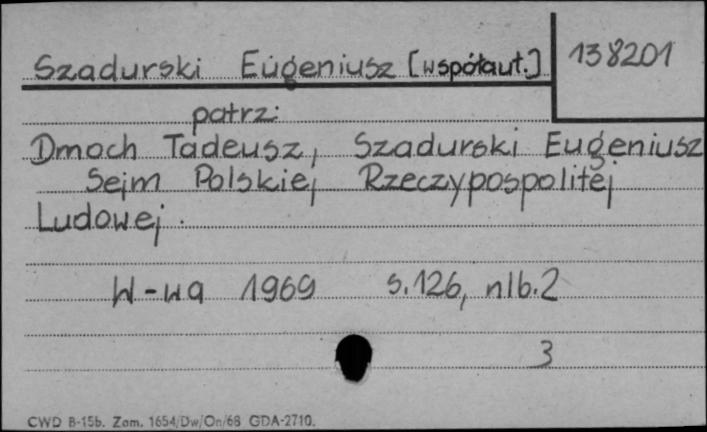 Szadurski Eugeniusz [współaut.] 138201
patrz:
Dmoch Tadeusz, Szadurski Eugeniusz
Sejm Polskiej Rzeczypospolitej
Ludowej.
W-wa 1969 s.126, nlb.2
3
CWD B-15b. Zam. 1654/Dw/On/68 GDA-2710.